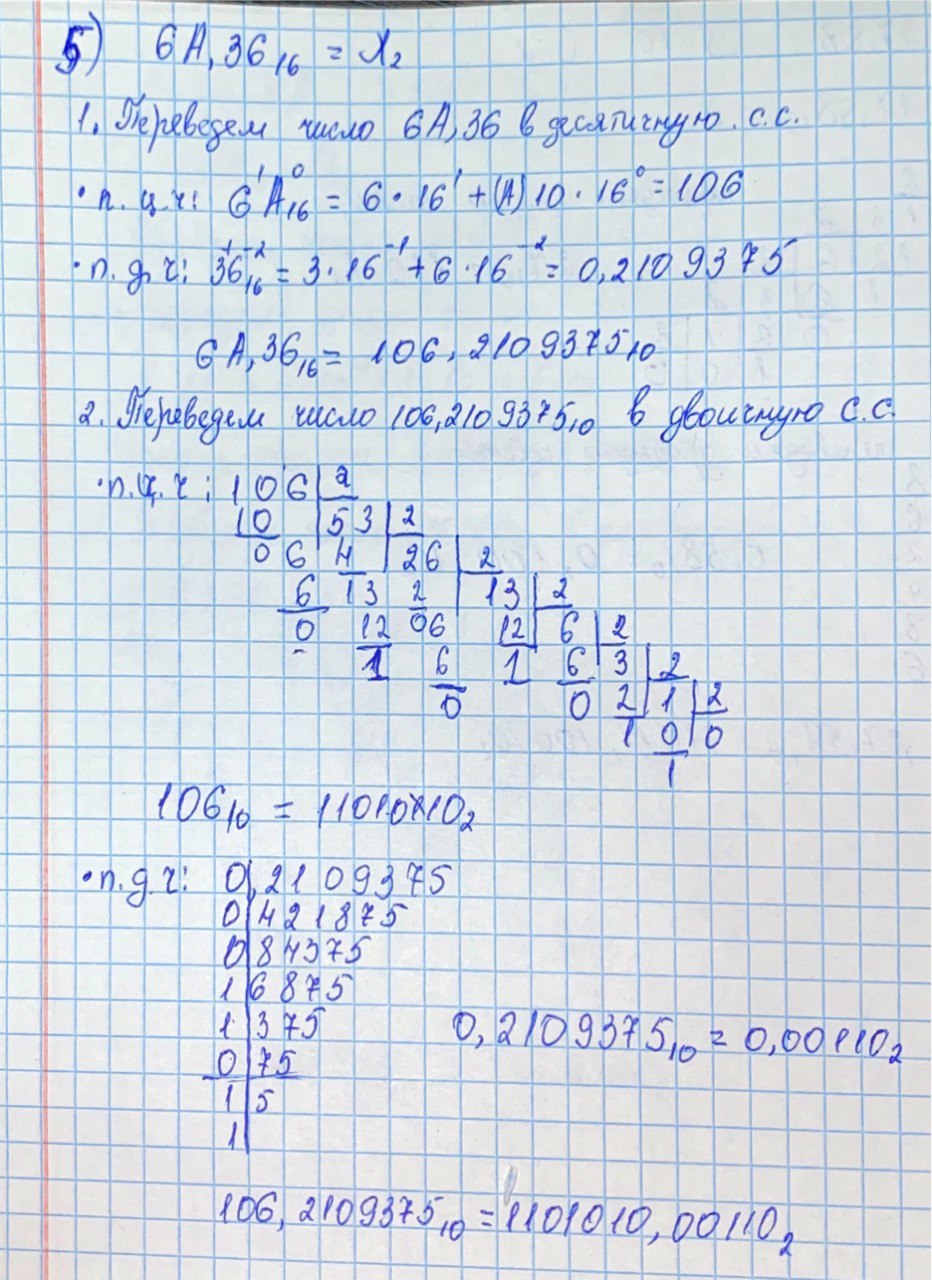 5) 6A,36₁₆ = X₂
1. Переведем число 6A,36 в десятичную с.с.
• п.ц.ч: 6¹A⁰₁₆ = 6·16¹ + (A)10·16⁰ = 106
• п.д.ч: 3⁻¹6⁻²₁₆ = 3·16⁻¹ + 6·16⁻² = 0,2109375
6A,36₁₆ = 106,2109375₁₀
2. Переведем число 106,2109375₁₀ в двоичную с.с.
• п.ц.ч: 106 | 2
10 | 53 | 2
06 4 26 | 2
6 13 2 13 | 2
0 12 06 12 6 | 2
1 6 1 6 3 | 2
0 0 2 1 | 2
1 0 0
1
106₁₀ = 1101010₂
• п.д.ч: 0,2109375
0|421875
0|84375
1|6875
1|375 0,2109375₁₀ = 0,00110₂
0|75
1|5
1|
106,2109375₁₀ = 1101010,00110₂